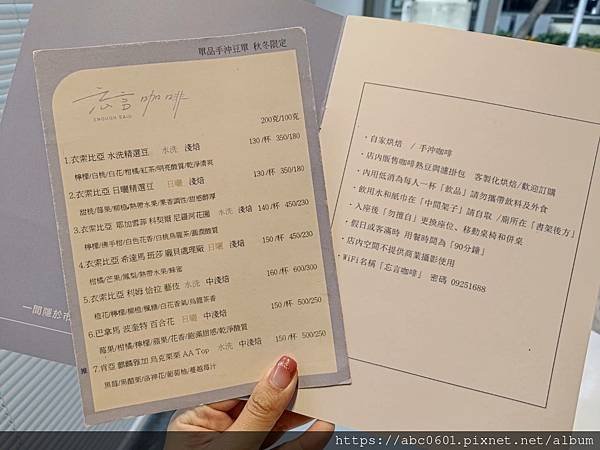 單品手沖豆單 秋冬限定
忘言咖啡
ENOUGH SAID
200克/100克
1.衣索比亞 水洗精選豆 水洗 淺焙 130 /杯 350/180
檸檬/白桃/白花/柑橘/紅茶/明亮酸質/乾淨清爽
2.衣索比亞 日曬精選豆 日曬 淺焙 130 /杯 350/180
甜桃/莓果/柳橙/熱帶水果/果香調香/甜感醇厚
3.衣索比亞 耶加雪菲 科契爾 尼疆阿花圈 水洗 淺焙 140 /杯 450/230
檸檬/佛手柑/白色花香/白桃烏龍茶/圓潤酸質
4.衣索比亞 希達馬 班莎 龐貝處理廠 日曬 淺焙 150 /杯 450/230
柑橘/芒果/鳳梨/熱帶水果/蜂蜜
5.衣索比亞 利姆 恰拉 藝伎 水洗 中淺焙 160 /杯 600/300
橙花/檸檬/柳橙/楓糖/白花香氣/烏龍茶香
6.巴拿馬 波奎特 百合花 日曬 中淺焙 150 /杯 500/250
莓果/柑橘/檸檬/蘋果/花香/飽滿甜感/乾淨酸質
推 7.肯亞 麒麟雅加 烏克栗栗 AA Top 水洗 中淺焙 150 /杯 500/250
黑莓/黑醋栗/洛神花/葡萄柚/蔓越莓汁
一間隱於市
・自家烘焙 / 手沖咖啡
・店內販售咖啡熟豆與濾掛包 客製化烘焙/歡迎訂購
・內用低消為每人一杯「飲品」請勿攜帶飲料及外食
・飲用水和紙巾在「中間架子」請自取 /廁所在「書架後方」
・入座後「勿擅自」更換座位、移動桌椅和併桌
・假日或客滿時 用餐時間為「90分鐘」
・店內空間不提供商業攝影使用
・WiFi名稱「忘言咖啡」 密碼 09251688
https://abc0601.pixnet.net/album